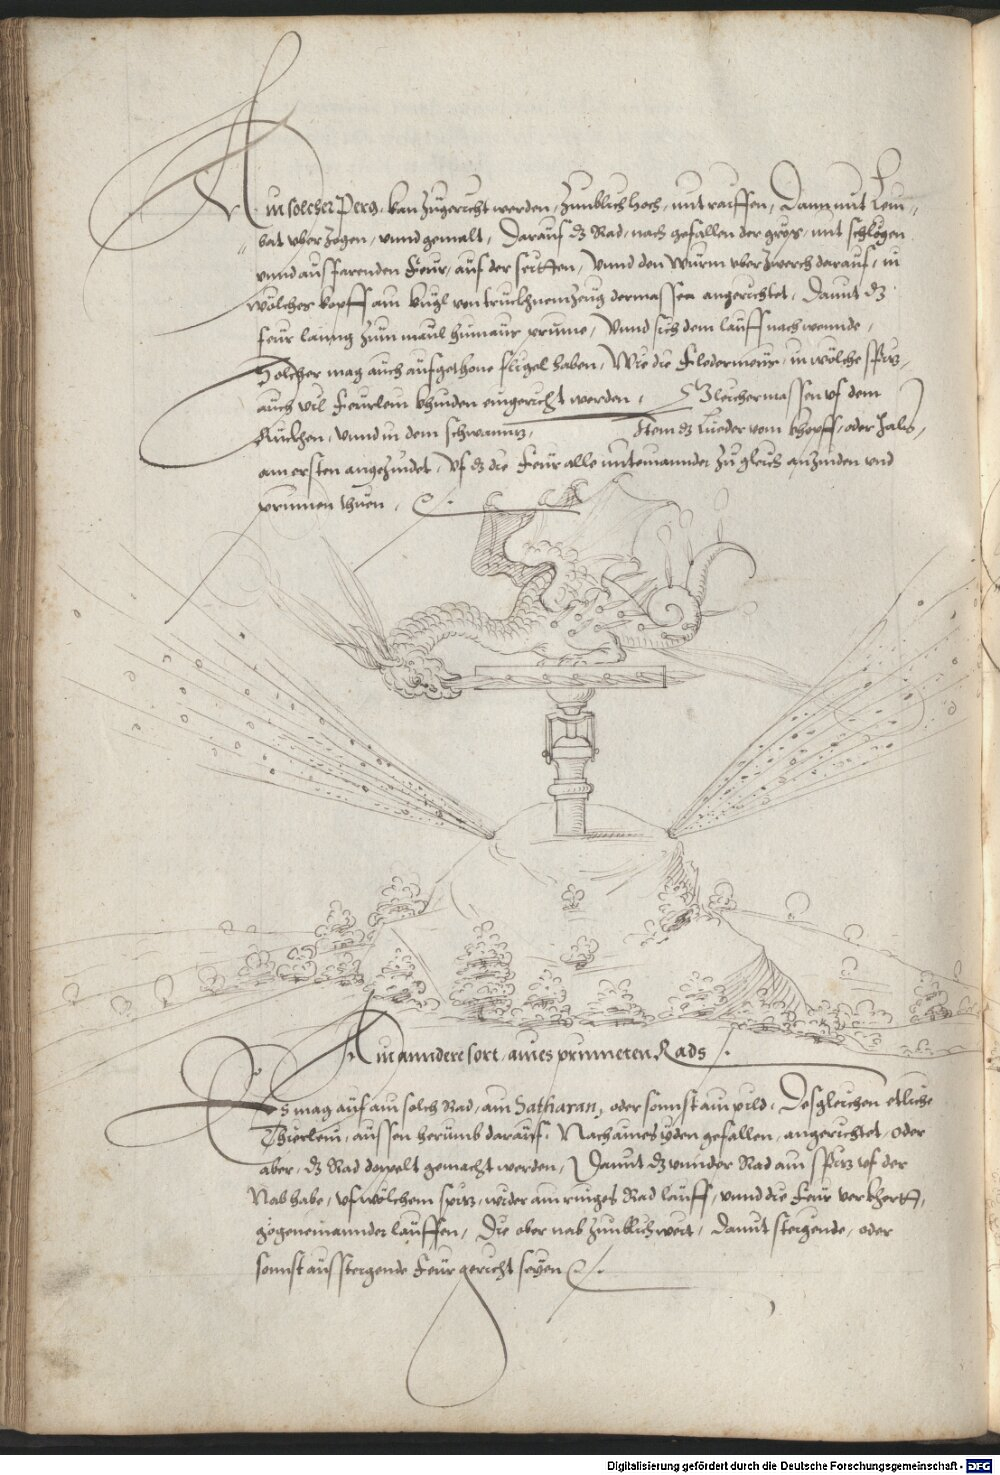 Ain solcher Perg, kan zugericht werden, zimblich hoch, mit raiffen, Dann mit Lein¬
bat vberzogen, vnnd gemalt, Darauf dz Rad, nach gefallen der grös, mit schlögen
vnnd ausfarenden Feur, auf der seitten, Vnnd den Wurm vberzwerch darauf, in
wölches kopff ain kugl von truckhnem Zeug dermassen angericht, Damit dz
feur lanng zum maul hinaus prinne, Vnnd sich dem lauff nach wennde,
Solcher mag auch aufgethone flügel haben, Wie die Fledermeus, in wölche spitz,
auch vil Feurlein khinden eingericht werden, Gleichermassen vf dem
Ruckhen, vnnd in dem schwanntz, Item dz Lueder vom khopff, oder hals,
am ersten angezindet, Vf dz die Feur alle miteinannder zugleich anzinden vnd
prinnen thuen,
Ain anndere sort, aines prinneten Rads
Es mag auf ain solch Rad, ain Satharan, oder sonnst ain pild, Desgleichen etliche
Thierlein, aussen herumb darauf, Nach aines yeden gefallen, angerichtet, oder
aber, dz Rad doppelt gemacht werden, Damit dz vnnder Rad ain spitz vf der
Nab habe, vf wölchem spitz, wider ain ringes Rad lauff, vnnd die Feur verkhertt,
gögeneinannder lauffen, Die ober nab zimblich weit, Damit steigende, oder
sonnst aussteigende Feur gericht seyen
Digitalisierung gefördert durch die Deutsche Forschungsgemeinschaft - DFG